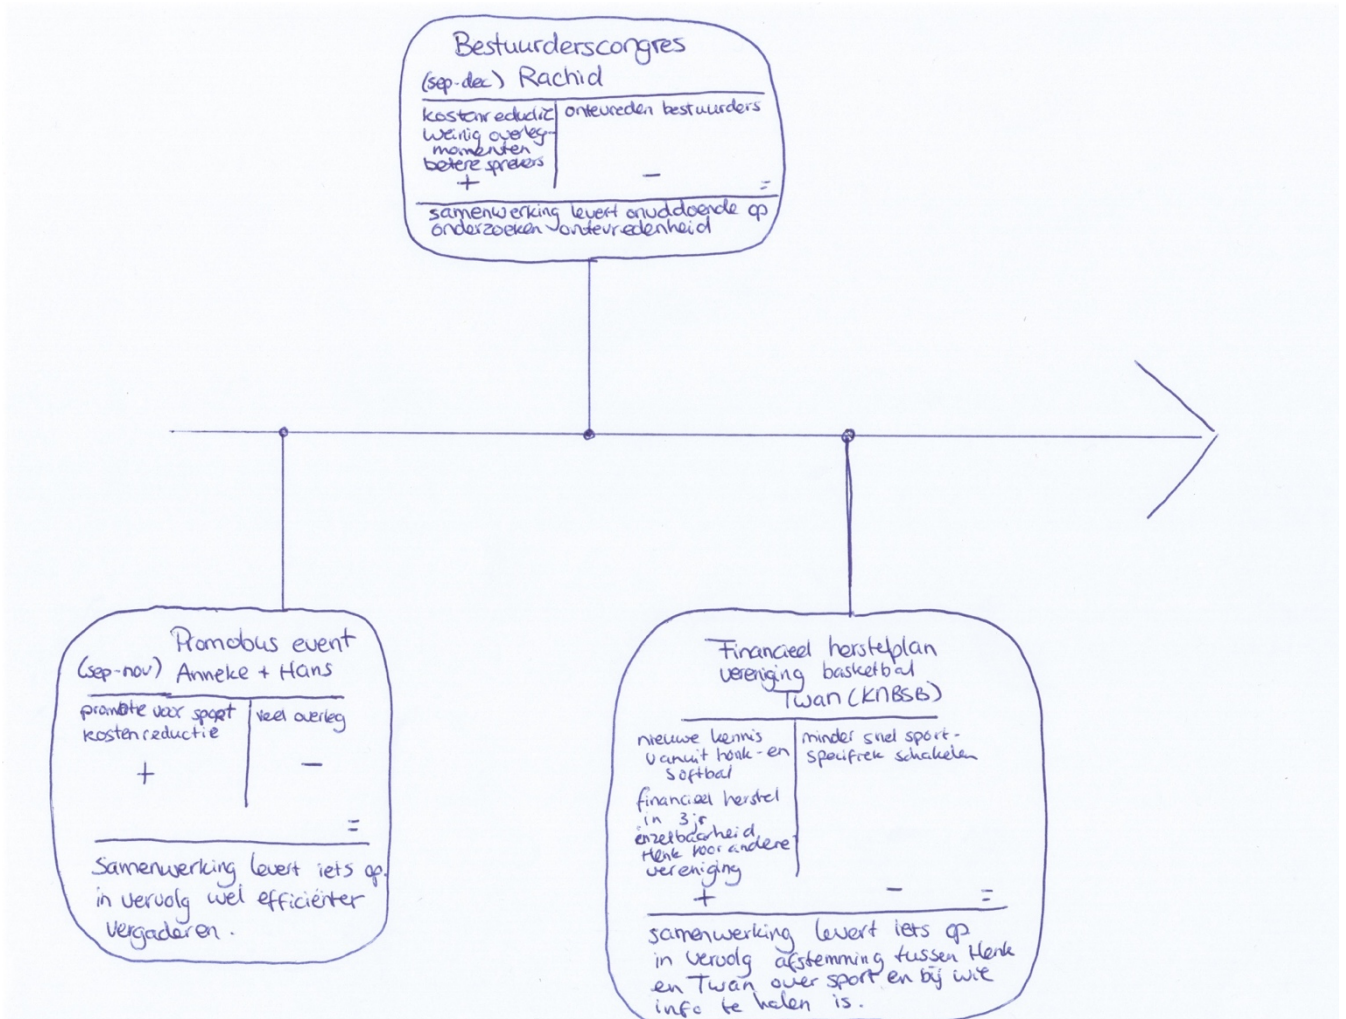 Bestuurderscongres
(sep-dec) Rachid
kostenreductie
weinig overleg-
momenten
betere sprekers
+
ontevreden bestuurders
-
=
samenwerking levert onvoldoende op
onderzoeken ontevredenheid
Promobus event
(sep-nov) Anneke + Hans
promotie voor sport
kostenreductie
+
veel overleg
-
=
Samenwerking levert iets op.
in vervolg wel efficiënter
vergaderen.
Financieel herstelplan
vereniging basketbal
Twan (KNBSB)
nieuwe kennis
vanuit honk- en
softbal
financieel herstel
in 3 jr
inzetbaarheid
Henk voor andere
vereniging
+
minder snel sport-
specifiek schakelen
-
=
samenwerking levert iets op
in vervolg afstemming tussen Henk
en Twan over sport en bij wie
info te halen is.